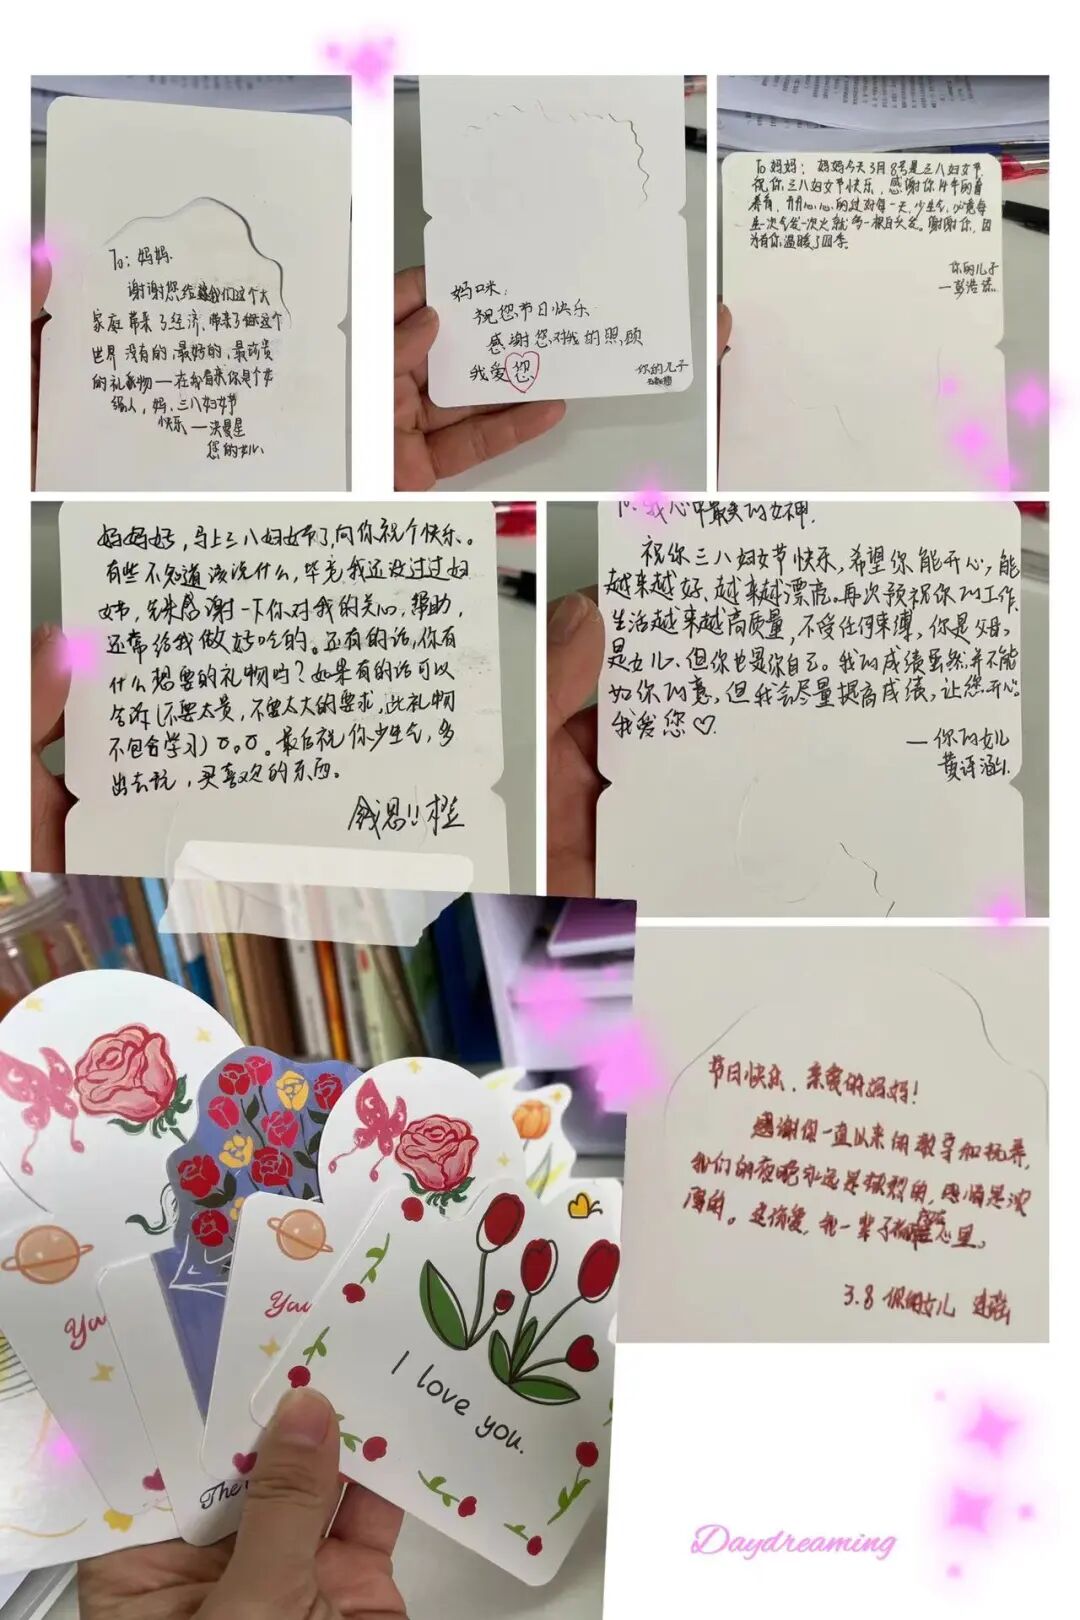 To：妈妈.
谢谢您给我们这个大
家庭带来了经济、带来了你这个
世界没有的、最好的、最珍贵
的礼物——在我看来你是个女
强人，妈、三八妇女节
快乐——洪曼星
您的女儿
妈咪：
祝您节日快乐
感谢您对我的照顾
我爱您
你的儿子
To 妈妈： 妈妈今天3月8号是三八妇女节,
祝你三八妇女节快乐，感谢你14年的
养育，开开心心的过好每一天，少生气，必竟每
生一次气发一次火就多一根白头发。谢谢你，因
为有你温暖了四季.
你的儿子
妈妈好，马上三八妇女节了,向你祝个快乐。
有些不知道该说什么，毕竟我还没过过妇
女节，先来感谢一下你对我的关心，帮助，
还常给我做好吃的。还有的话，你有
什么想要的礼物吗？如果有的话可以
告诉(不要太贵，不要太大的要求，此礼物
不包含学习) ಠ.ಠ。最后祝你少生气，多
出去玩，买喜欢的东西。
To. 我心中最美的女神.
祝你三八妇女节快乐，希望你能开心，能
越来越好、越来越漂亮。再次预祝你的工作、
生活越来越高质量，不受任何束缚，你是父母，
是女儿、但你也是你自己。我的成绩虽然并不能
如你的意，但我会尽量提高成绩，让您开心。
我爱您♡.
—你的女儿
黄诗涵
节日快乐、亲爱的妈妈！
感谢你一直以来的教导和抚养，
我们的夜晚永远是热烈的，感情是浓
厚的。这份爱，我一辈子都 心里。
3.8 你的女儿
You
You
The
I love you.
Daydreaming